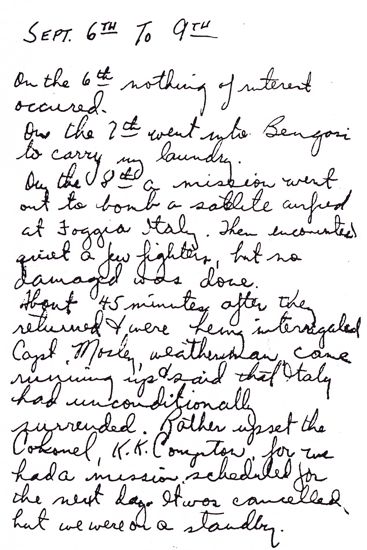 SEPT. 6TH TO 9TH
On the 6th nothing of interest
occured.
On the 7th went into Bengasi
to carry my laundry.
On the 8th a mission went
out to bomb a satlite airfied
at Foggia Italy. Then encounted
quiet a few fighters, but no
damaged was done.
About 45 minutes after they
returned & were being interrigated
Capt. Mosley, weatherman, came
running up & said that Italy
had unconditionally
surrendered. Rather upset the
Colonel, K.K. Compton, for we
had a mission scheduled for
the next day. It was cancelled,
but we were on a standby.